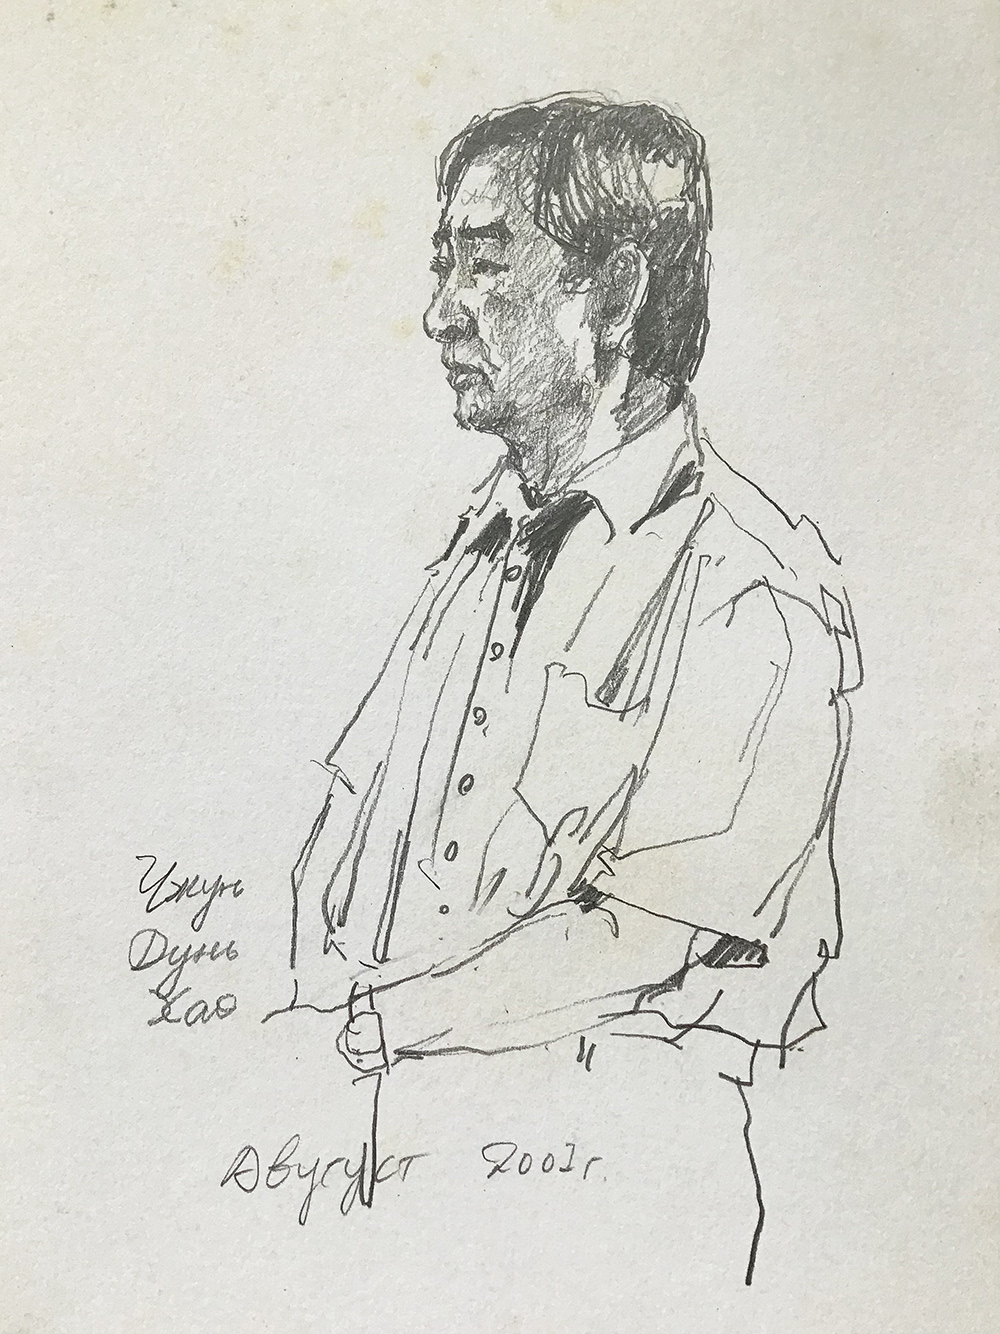 Чжун
Дунь
Хао
Август 2001г.